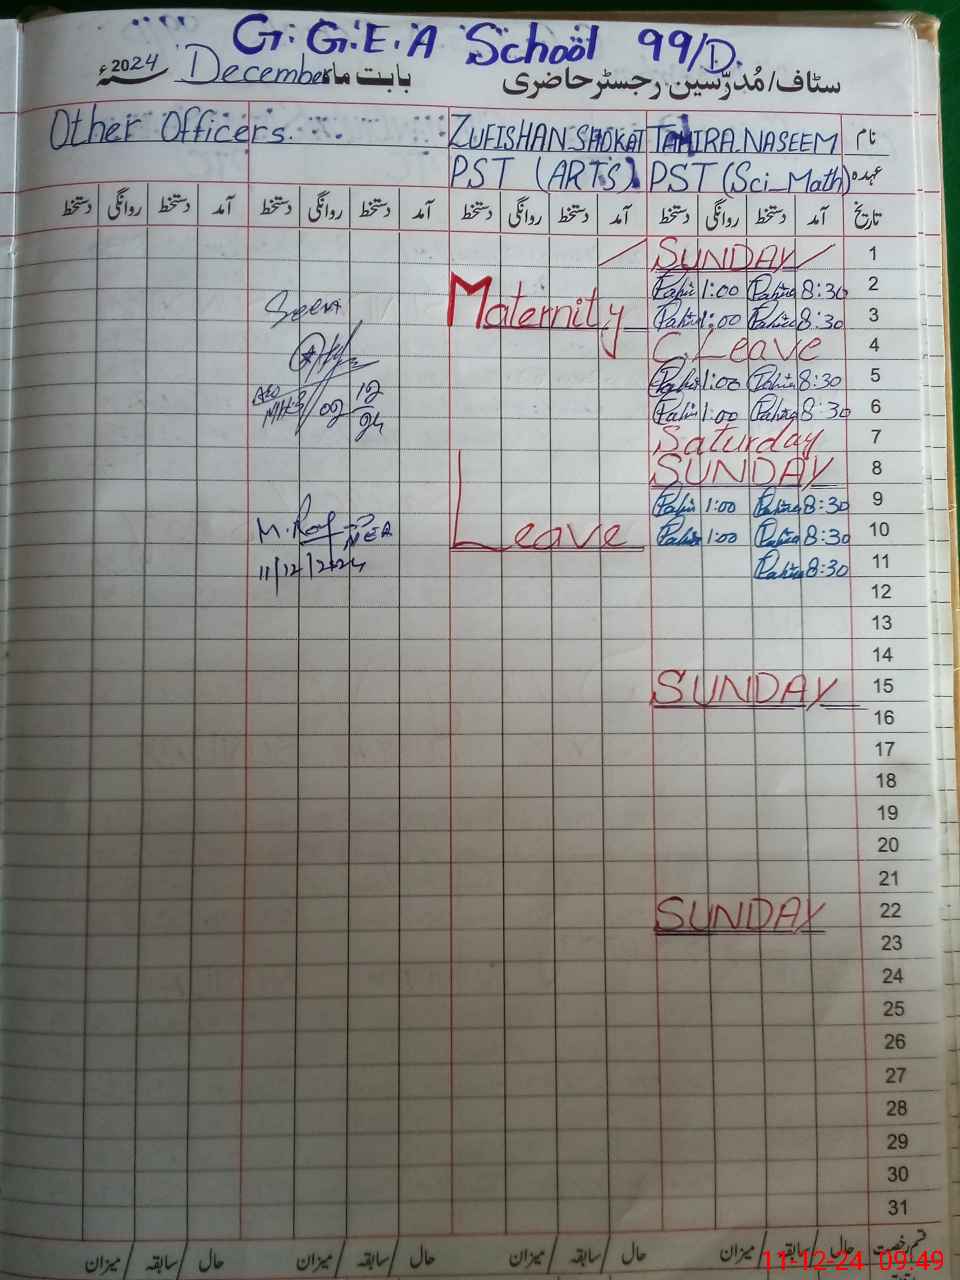 G.G.E.A School 99/D.
سٹاف/مُدرّسین رجسٹر حاضری بابت ماہ December 2024ء
نام TAHIRA.NASEEM ZUFISHAN.SHOKAT Other Officers.
عہدہ PST (Sci_Math) PST (ARTS).
تاریخ آمد دستخط روانگی دستخط آمد دستخط روانگی دستخط آمد دستخط روانگی دستخط آمد دستخط روانگی دستخط
1 SUNDAY
2 8:30 1:00
3 8:30 1:00
Maternity
4 C.Leave
5 8:30 1:00
6 8:30 1:00
7 Saturday
8 SUNDAY
9 8:30 1:00
10 8:30 1:00
Leave
11 8:30
12
13
14
15 SUNDAY
16
17
18
19
20
21
22 SUNDAY
23
24
25
26
27
28
29
30
31
Seen
02 12/24
11/12/2024
قسم رخصت حال/سابقہ/میزان حال/سابقہ/میزان حال/سابقہ/میزان حال/سابقہ/میزان
11-12-24 09:49